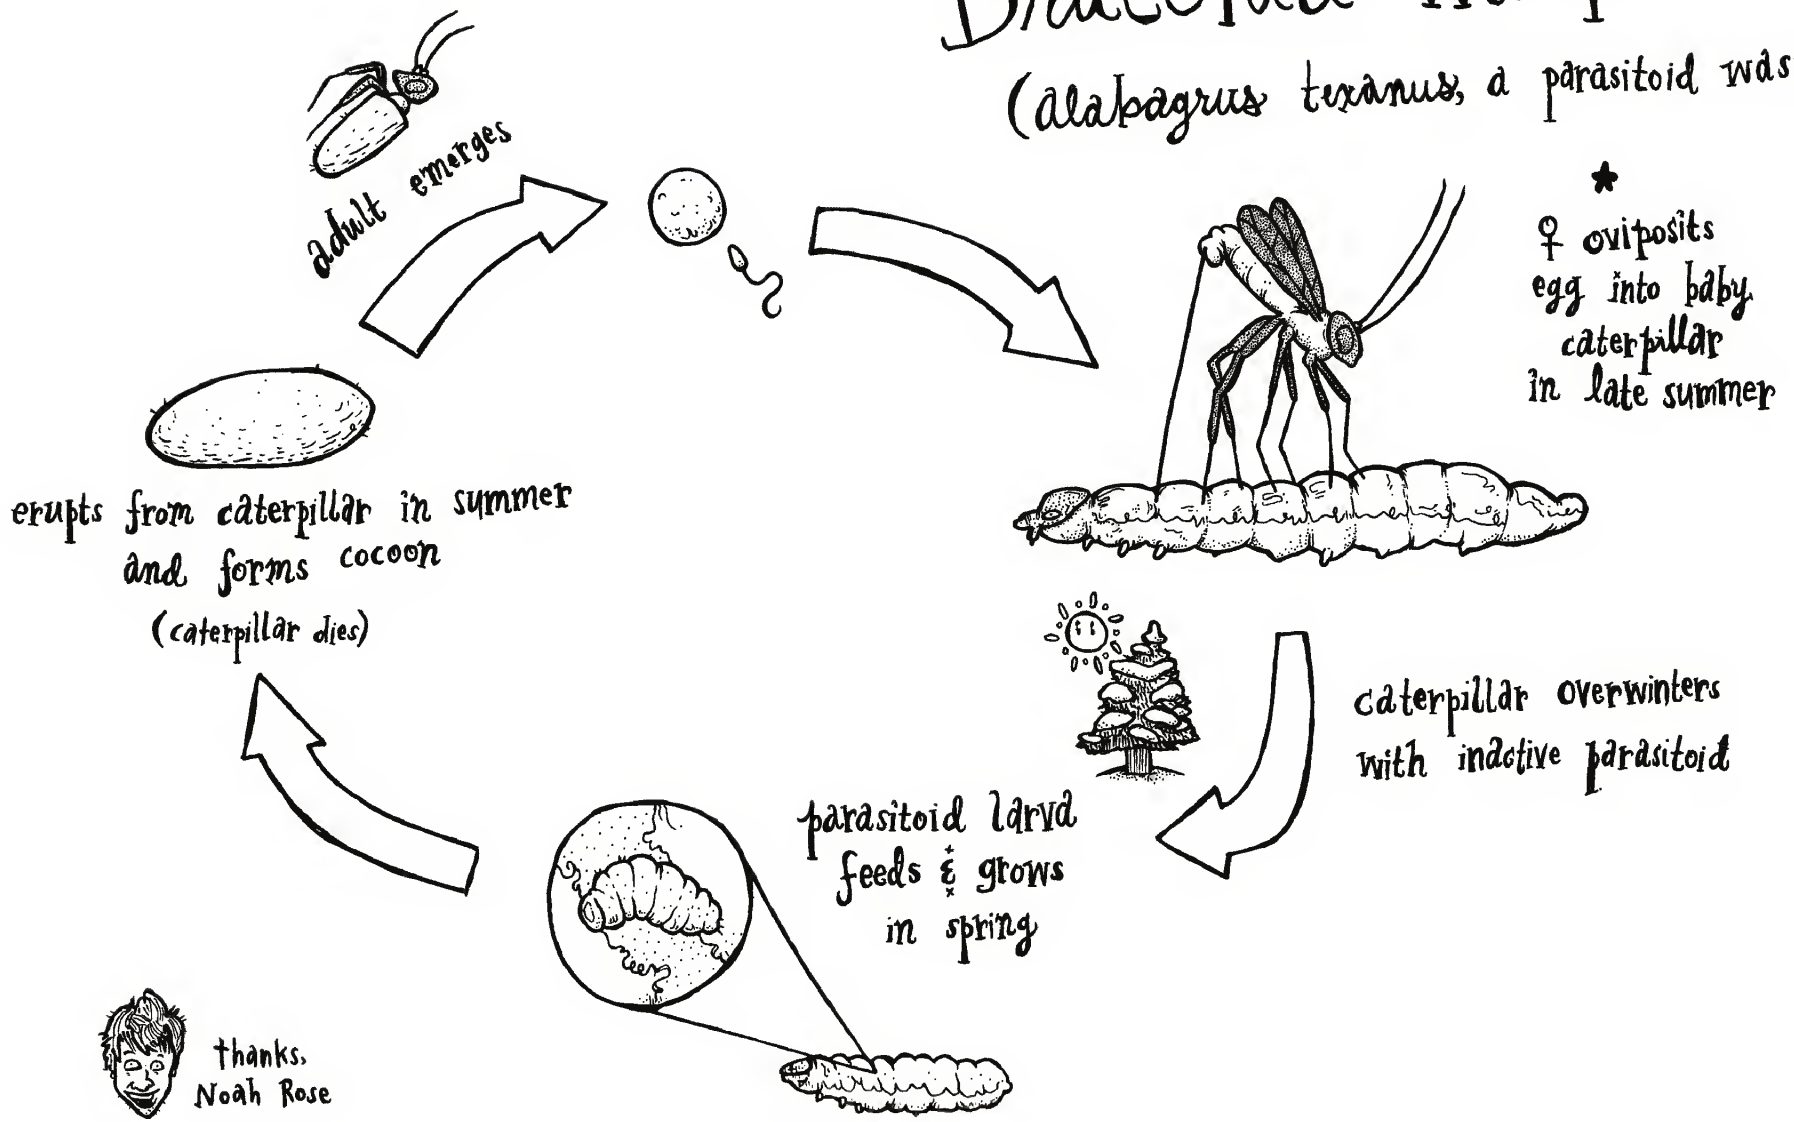 (alabagrus texanus, a parasitoid was
adult emerges
♀ oviposits
egg into baby
caterpillar
in late summer
erupts from caterpillar in summer
and forms cocoon
(caterpillar dies)
caterpillar overwinters
with inactive parasitoid
parasitoid larva
feeds & grows
in spring
thanks,
Noah Rose